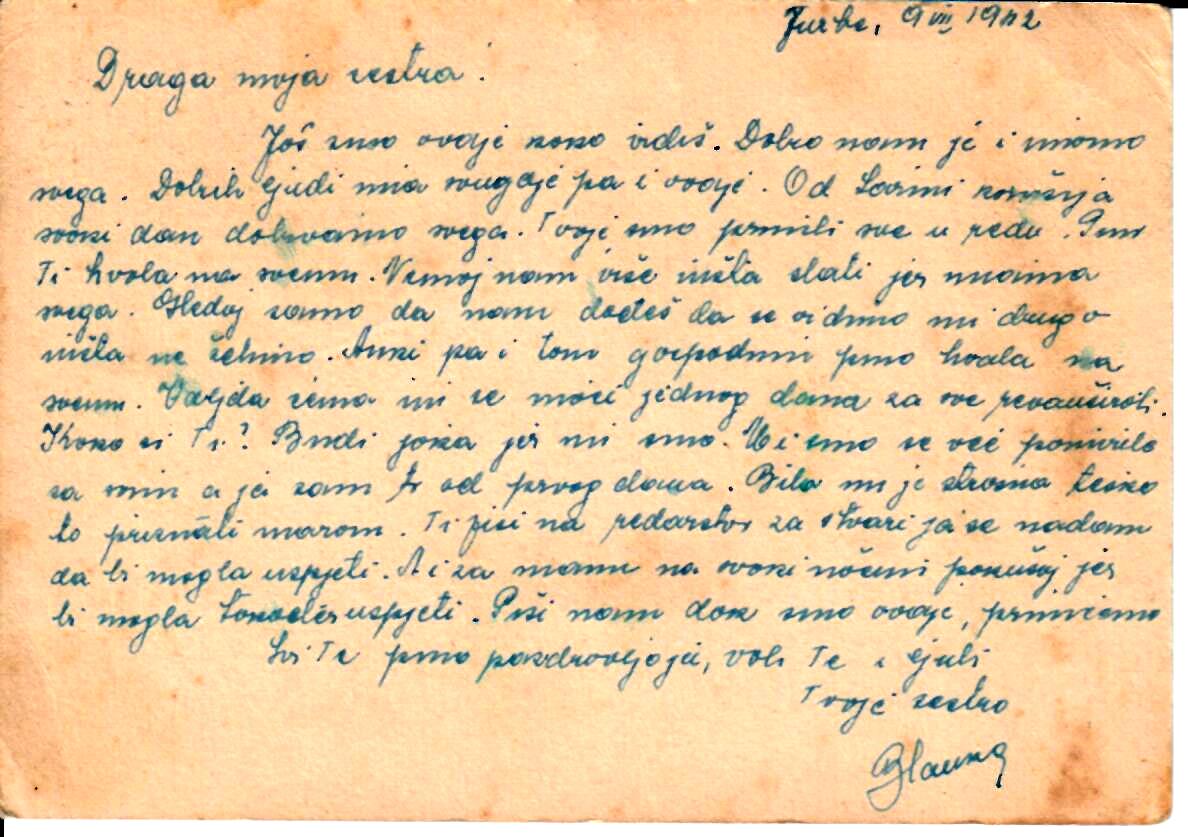 9 VIII 1942
Draga moja sestra!
Još smo ovdje kako vidiš. Dobro nam je i imamo
svega. Dobrih ljudi ima svugdje pa i ovdje. Od
svaki dan dobivamo svega. Tvoje smo primili sve u redu. Puno
Ti hvala na svemu. Nemoj nam više ništa slati jer imama
svega. Gledaj samo da nam dođeš da se vidimo mi drugo
ništa ne želimo. Anki pa i tom gospodinu puno hvala na
svemu. Valjda ćemo mi se moći jednog dana za sve revanširati.
Kako si Ti? Budi jaka jer mi smo. Mi smo se već pomirile
sa svim a ja sam to od prvog dana. Bilo mi je strašna teško
to priznati marom. Ti piši na redarstvo za stvari ja se nadam
da bi mogla uspjeti. A i za mamu na svaki način pokušaj jer
bi mogla također uspjeti. Piši nam dok smo ovdje, primićemo
Svi Te puno pozdravljaju, voli Te i ljubi
Tvoje sestra
Blanka